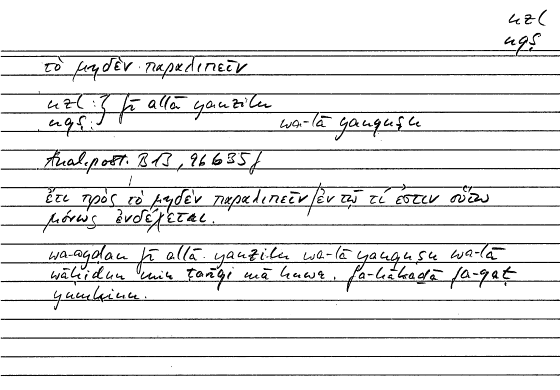 nzl
nqṣ
τὸ μηδὲν παραλιπεῖν
nzl :} fī allā yanzilu
nqṣ :} wa-lā yanquṣu
Anal. post. B 13, 96b35f
ἔτι πρὸς τὸ μηδὲν παραλιπεῖν / ἐν τῷ τί ἐστιν οὕτω
μόνως ἐνδέχεται.
wa-ayḍan fī allā yanzilu wa-lā yanquṣu wa-lā
wāḥidun min mā huwa. fa-hākaḏā fa-qaṭ
yumkinu.